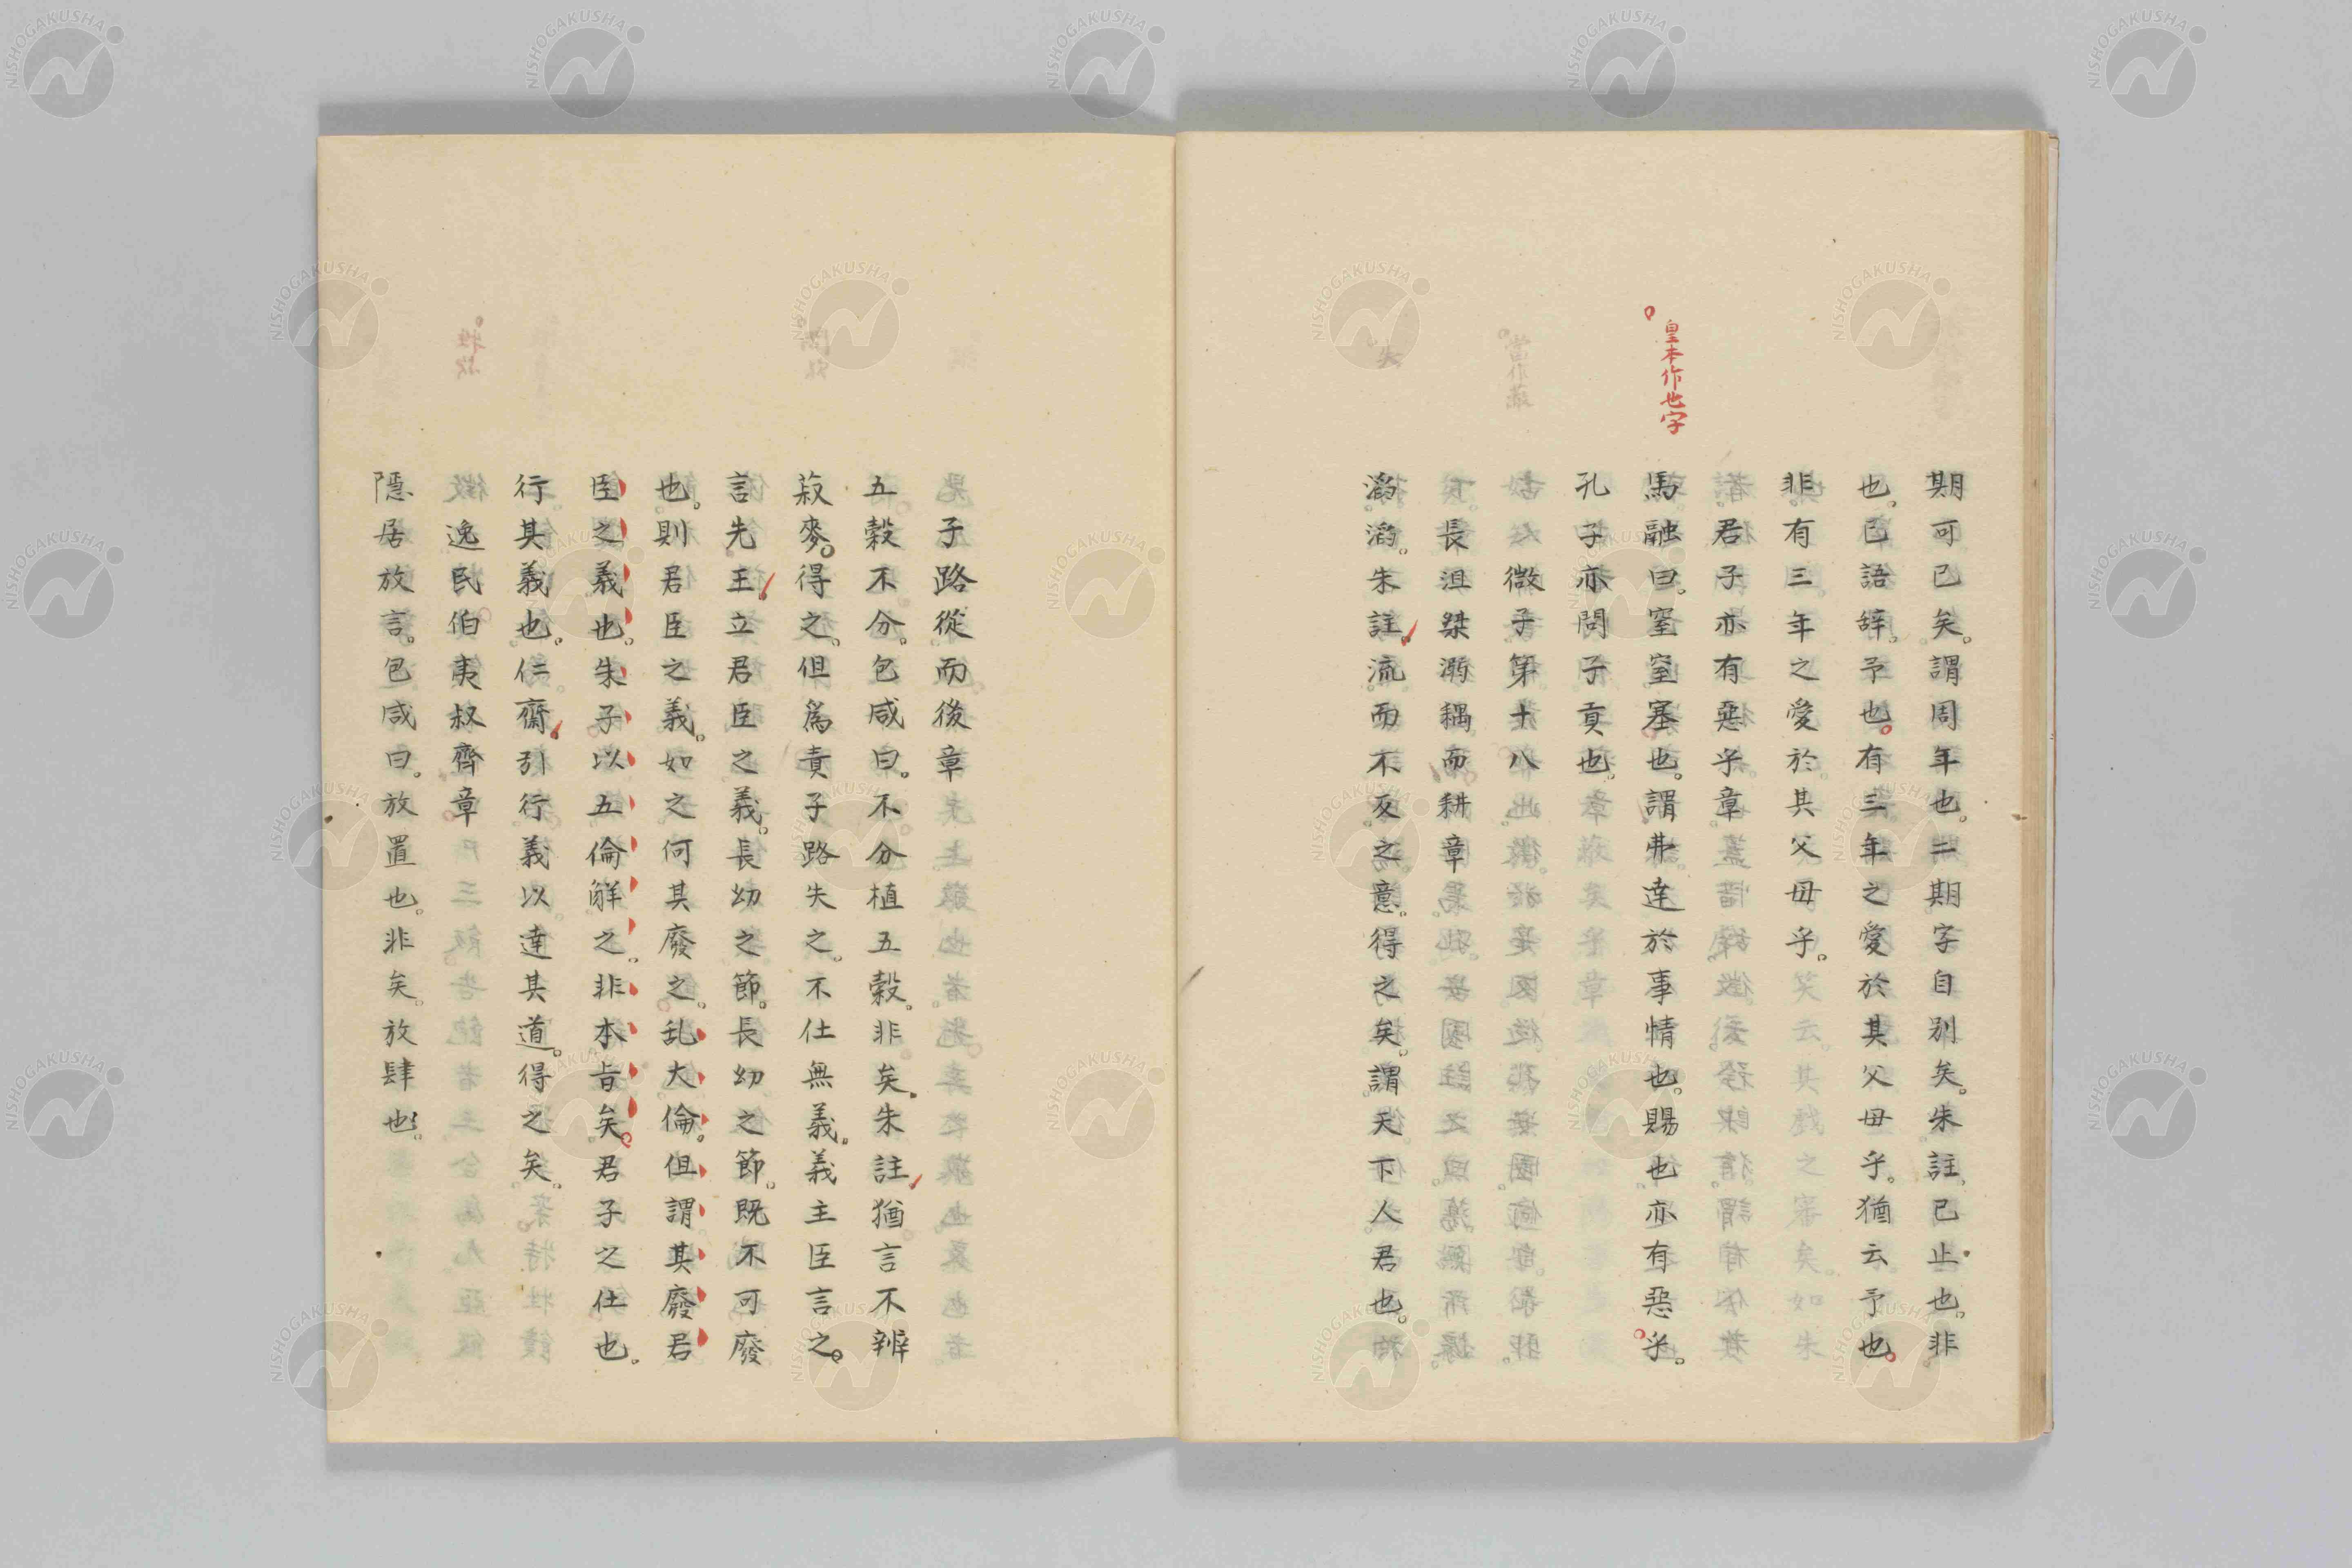 期可已矣。謂周年也。二期字自別矣。朱註。已止也。非
也。已語辞。予也。有三年之愛於其父母乎。猶云予也。
非有三年之愛於其父母乎。
君子亦有惡乎章
皇本作也字
馬融曰。窒窒塞也。謂弗達於事情也。賜也亦有惡乎。
孔子亦問子貢也。
微子第十八
長沮桀溺耦而耕章
滔滔。朱註。流而不反之意。得之矣。謂天下人君也。
子路從而後章
五穀不分。包咸曰。不分植五穀。非矣。朱註。猶言不辨
菽麥。得之。但爲責子路失之。不仕無義。義主臣言之。
言先王立君臣之義。長幼之節。長幼之節。既不可廢
也。則君臣之義。如之何其廢之。乱大倫。但謂其廢君
臣之義也。朱子以五倫觧之。非本旨矣。君子之仕也。
行其義也。仁齋引行義以達其道。得之矣。
逸民伯夷叔齊章
隱居放言。包咸曰。放置也。非矣。放肆也。